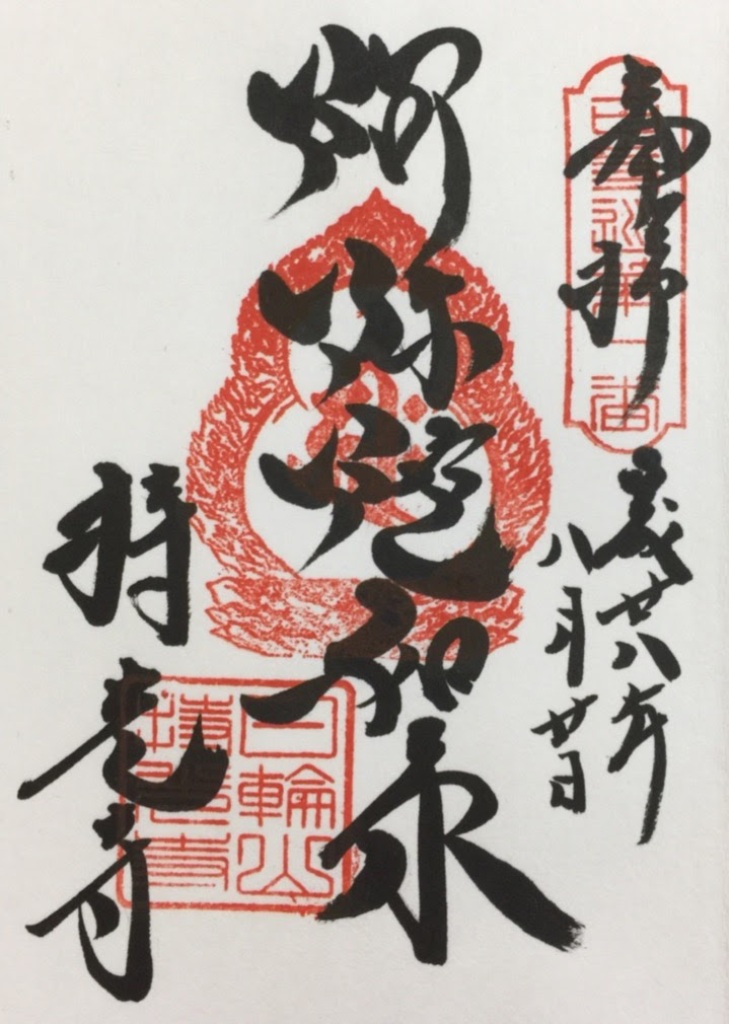 奉拝
平成廿八年
八月廿日
阿弥陀如来
持光寺
日輪山
持光寺